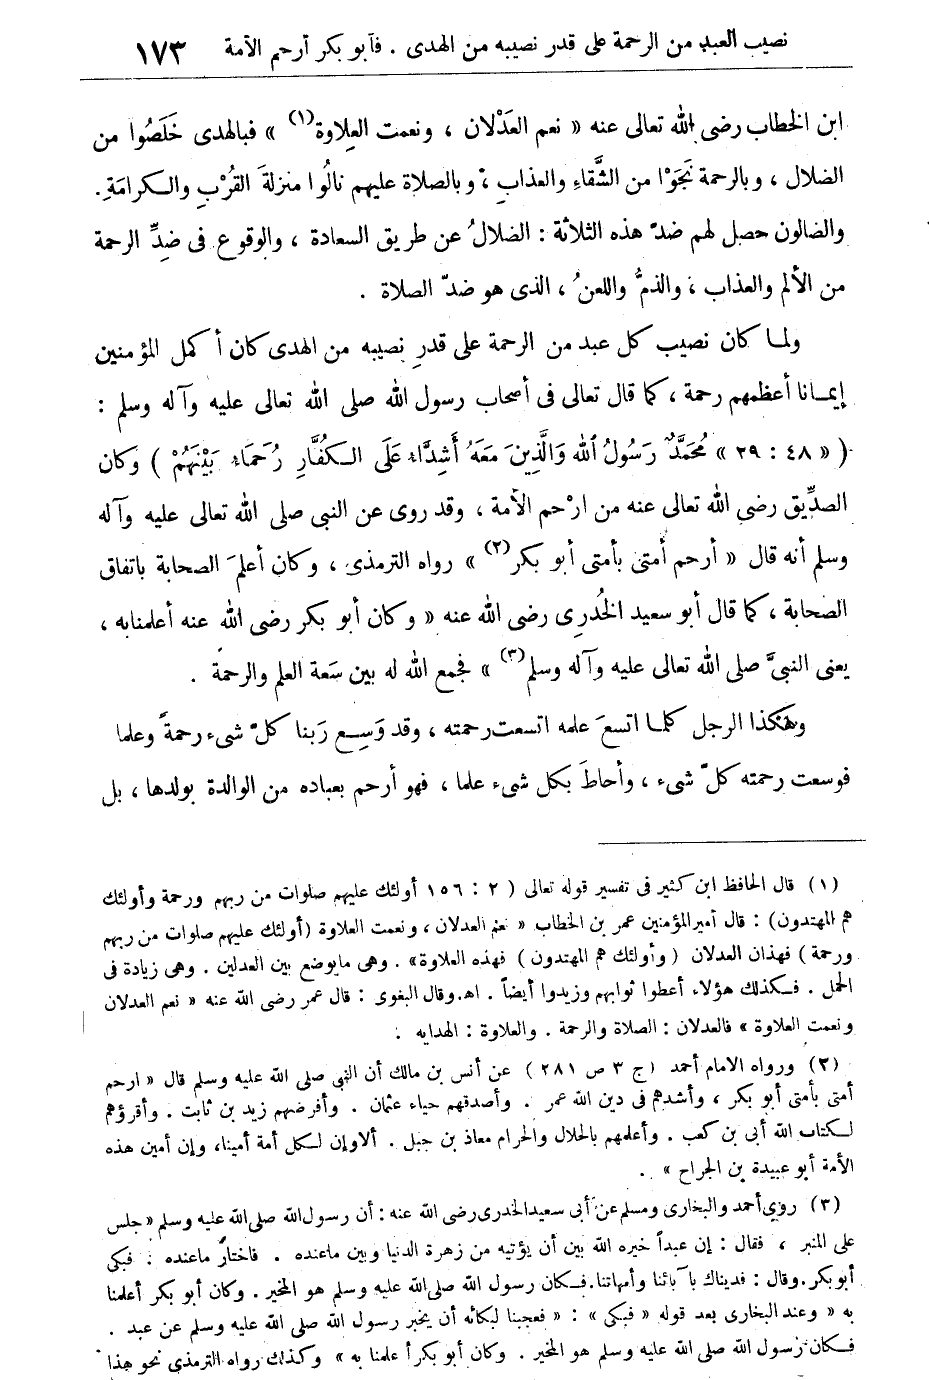 نصيب العبد من الرحمة على قدر نصيبه من الهدى . فأبو بكر أرحم الأمة ١٧٣
ابن الخطاب رضى الله تعالى عنه « نعم العَدْلان ، ونعمت العِلاوة(١) » فبالهدى خَلَصُوا من
الضلال ، وبالرحمة نَجَوْا من الشَّقاءِ والعذابِ ، وبالصلاة عليهم نالُوا منزلةَ القُرْبِ والكرامَةِ .
والضالون حصل لهم ضدّ هذه الثلاثة : الضلالُ عن طريق السعادة ، والوقوع فى ضِدِّ الرحمة
من الألم والعذاب ، والذمُّ واللعنُ ، الذى هو ضدّ الصلاة .
ولما كان نصيب كل عبد من الرحمة على قدرِ نصيبه من الهدى كان أكمل المؤمنين
إيمانا أعظمهم رحمة ، كما قال تعالى فى أصحاب رسول الله صلى الله تعالى عليه وآله وسلم :
( « ٤٨ : ٢٩ » مُحَمَّدٌ رَسُولُ اللهِ وَالَّذِينَ مَعَهُ أَشِدَّاءُ عَلَى الكُفَّارِ رُحَمَاءُ بَيْنَهُمْ ) وكان
الصدِّيق رضى الله تعالى عنه من ارْحم الأمة ، وقد روى عن النبى صلى الله تعالى عليه وآله
وسلم أنه قال « أرحم أمتى بأمتى أبو بكر(٢) » رواه الترمذى ، وكان أعلمَ الصحابة باتفاق
الصحابة ، كما قال أبو سعيد الخُدرِى رضى الله عنه « وكان أبو بكر رضى الله عنه أعلمنابه ،
يعنى النبىَّ صلى الله تعالى عليه وآله وسلم(٣) » فجمع الله له بين سَعة العلم والرحمة .
وهكذا الرجل كلما اتسعَ علمه اتسعت رحمته ، وقد وَسِع رَبنا كلّ شىء رحمةً وعلما
فوسعت رحمته كلّ شىء ، وأحاطَ بكل شىء علما ، فهو أرحم بعباده من الوالدة بولدها ، بل
(١) قال الحافظ ابن كثير فى تفسير قوله تعالى ( ٢ : ١٥٦ أولئك عليهم صلوات من ربهم ورحمة وأولئك
هم المهتدون) : قال أمير المؤمنين عمر بن الخطاب « نعم العدلان ، ونعمت العلاوة (أولئك عليهم صلوات من ربهم
ورحمة ) فهذان العدلان ( وأولئك هم المهتدون ) فهذه العلاوة» . وهى مايوضع بين العدلين . وهى زيادة فى
الحمل . فكذلك هؤلاء أعطوا ثوابهم وزيدوا أيضاً . اهـ. وقال البغوى : قال عمر رضى الله عنه « نعم العدلان
ونعمت العلاوة » فالعدلان : الصلاة والرحمة . والعلاوة : الهدايه .
(٢) ورواه الامام أحمد (ج ٣ ص ٢٨١ ) عن أنس بن مالك أن النبى صلى الله عليه وسلم قال « ارحم
أمتى بأمتى أبو بكر ، وأشدهم فى دين الله عمر . وأصدقهم حياء عثمان . وأفرضهم زيد بن ثابت . وأقرؤهم
لكتاب الله أبى بن كعب . وأعلمهم بالحلال والحرام معاذ بن جبل . ألا وإن لكل أمة أمينا، وإن أمين هذه
الأمة أبو عبيدة بن الجراح » .
(٣) روى أحمد والبخارى ومسلم عن أبى سعيد الخدرى رضى الله عنه : أن رسول الله صلى الله عليه وسلم « جلس
على المنبر ، فقال : إن عبداً خيره الله بين أن يؤتيه من زهرة الدنيا وبين ماعنده . فاختار ماعنده . فبكى
أبو بكر. وقال : فديناك بآبائنا وأمهاتنا. فكان رسول الله صلى الله عليه وسلم هو المخير . وكان أبو بكر أعلمنا
به « وعند البخارى بعد قوله « فبكى » : « فعجبنا لبكائه أن يخبر رسول الله صلى الله عليه وسلم عن عبد .
فكان رسول الله صلى الله عليه وسلم هو المخير . وكان أبو بكر أعلمنا به » وكذلك رواه الترمذى نحو هذا